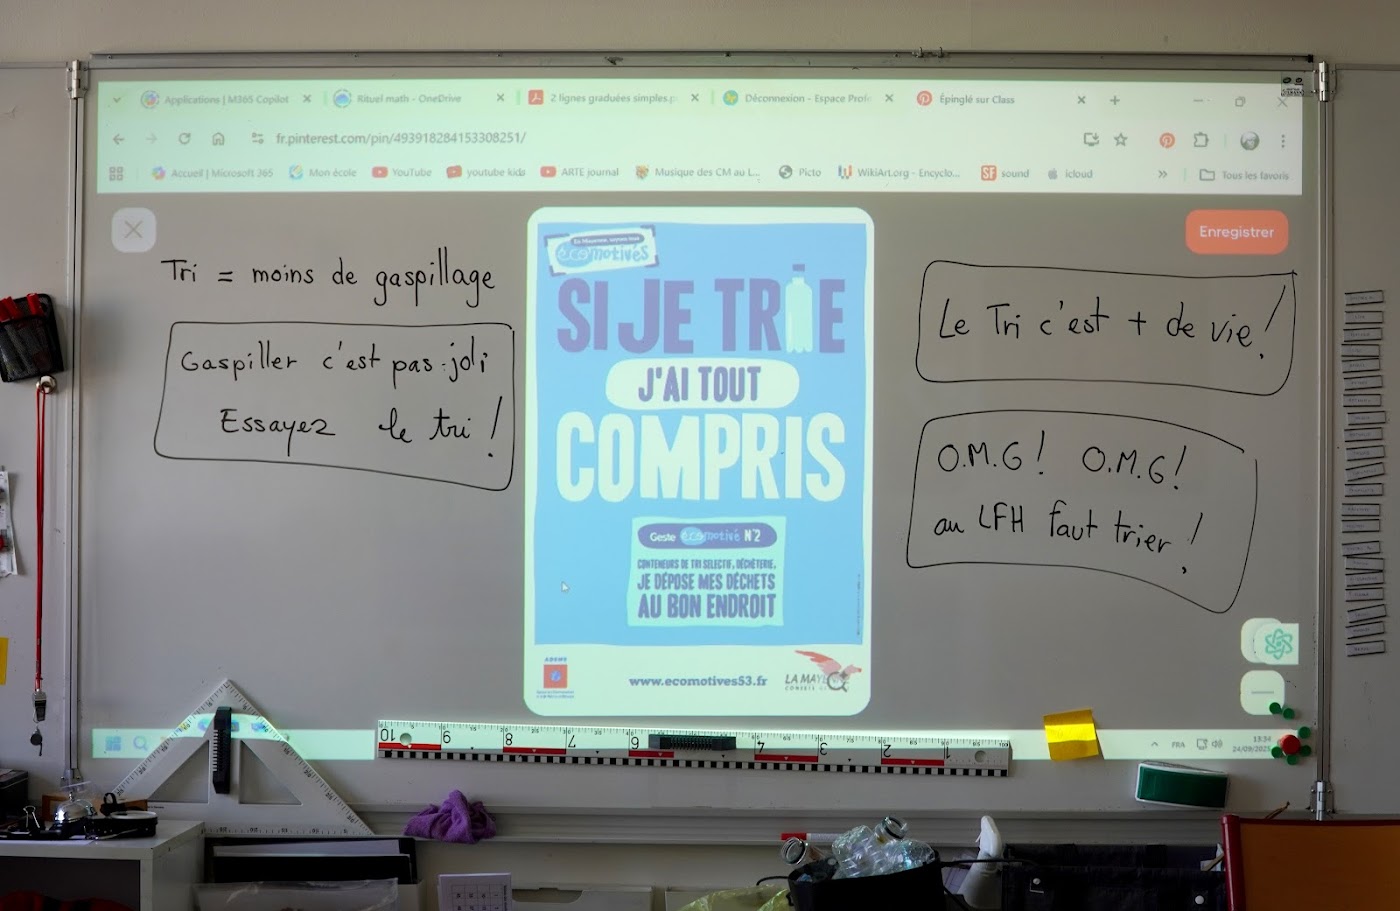 Applications | M365 Copilot
Rituel math - OneDrive
2 lignes graduées simples.p
Déconnexion - Espace Profe
Épinglé sur Class
fr.pinterest.com/pin/493918284153308251/
Accueil | Microsoft 365
Mon école
YouTube
youtube kids
ARTE journal
Musique des CM au L...
Picto
WikiArt.org - Encyclo...
SF sound
icloud
Tous les favoris
Enregistrer
Tri = moins de gaspillage
Gaspiller c'est pas joli
Essayez le tri !
écomotivés
SI JE TRIE
J'AI TOUT
COMPRIS
Geste écomotivé N°2
CONTENEURS DE TRI SÉLECTIF, DÉCHÈTERIE,
JE DÉPOSE MES DÉCHETS
AU BON ENDROIT
ADEME
www.ecomotives53.fr
LA MAYE
CONSEIL
Le Tri c'est + de vie !
O.M.G ! O.M.G !
au LFH faut trier !
10 9 8 7 6 4 3 2 1
FRA